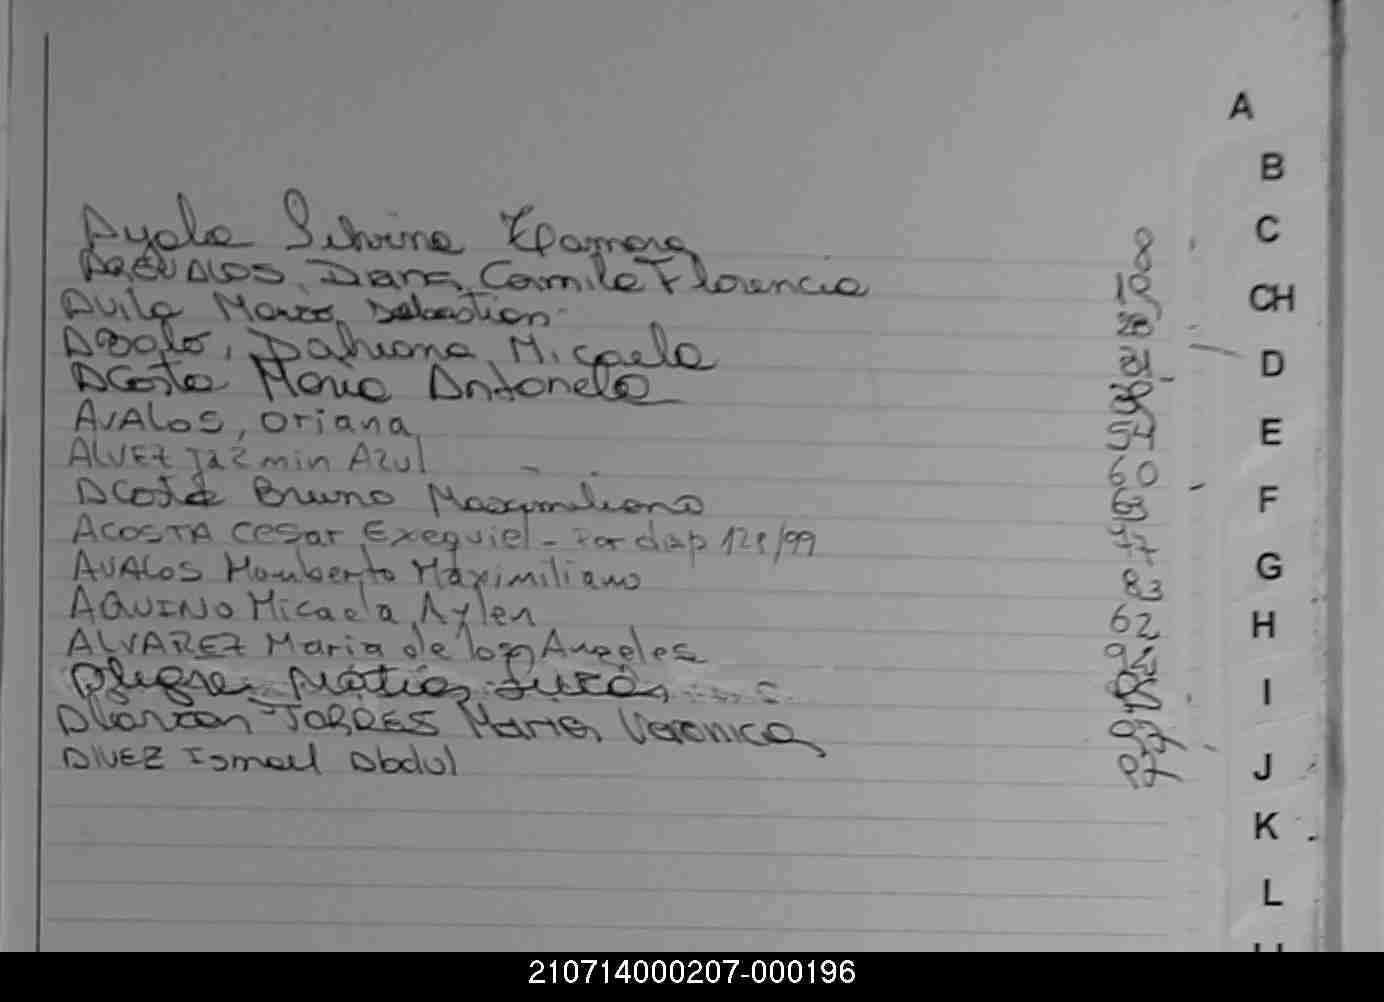 Ayala Silvina Tamara 8
AREVALOS, Diana, Camila Florencia 19
Avila Marcos Sebastian
Aballo, Dahiana Micaela 31
Acosta Maria Antonela
AVALOS, Oriana 54
ALVEZ Jazmin Azul 60
Acosta Bruno Maximiliano 63
ACOSTA Cesar Exequiel - Por disp 128/99 77
AVALOS Humberto Maximiliano 83
AQUINO Micaela Aylen 62
ALVAREZ Maria de los Angeles
Alegre, Matias
Alarcon TORRES Maria Veronica 97
ALVEZ Ismael Abdul 97
A
B
C
CH
D
E
F
G
H
I
J
K
L
210714000207-000196